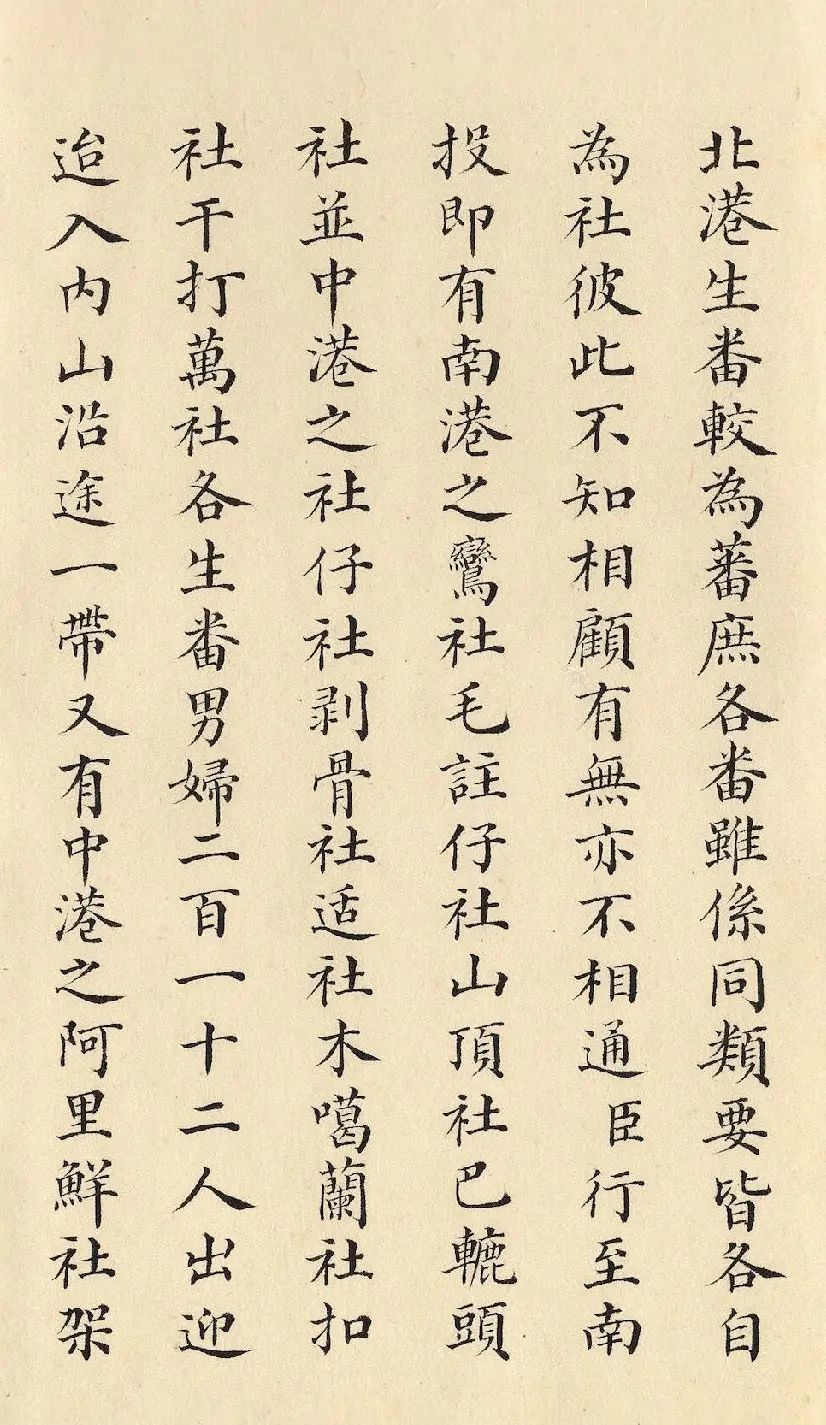 北港生番較為蕃庶各番雖係同類要皆各自
為社彼此不知相顧有無亦不相通臣行至南
投即有南港之鸞社毛註仔社山頂社巴轆頭
社並中港之社仔社剥骨社适社木噶蘭社扣
社干打萬社各生番男婦二百一十二人出迎
迨入内山沿途一帶又有中港之阿里鮮社架